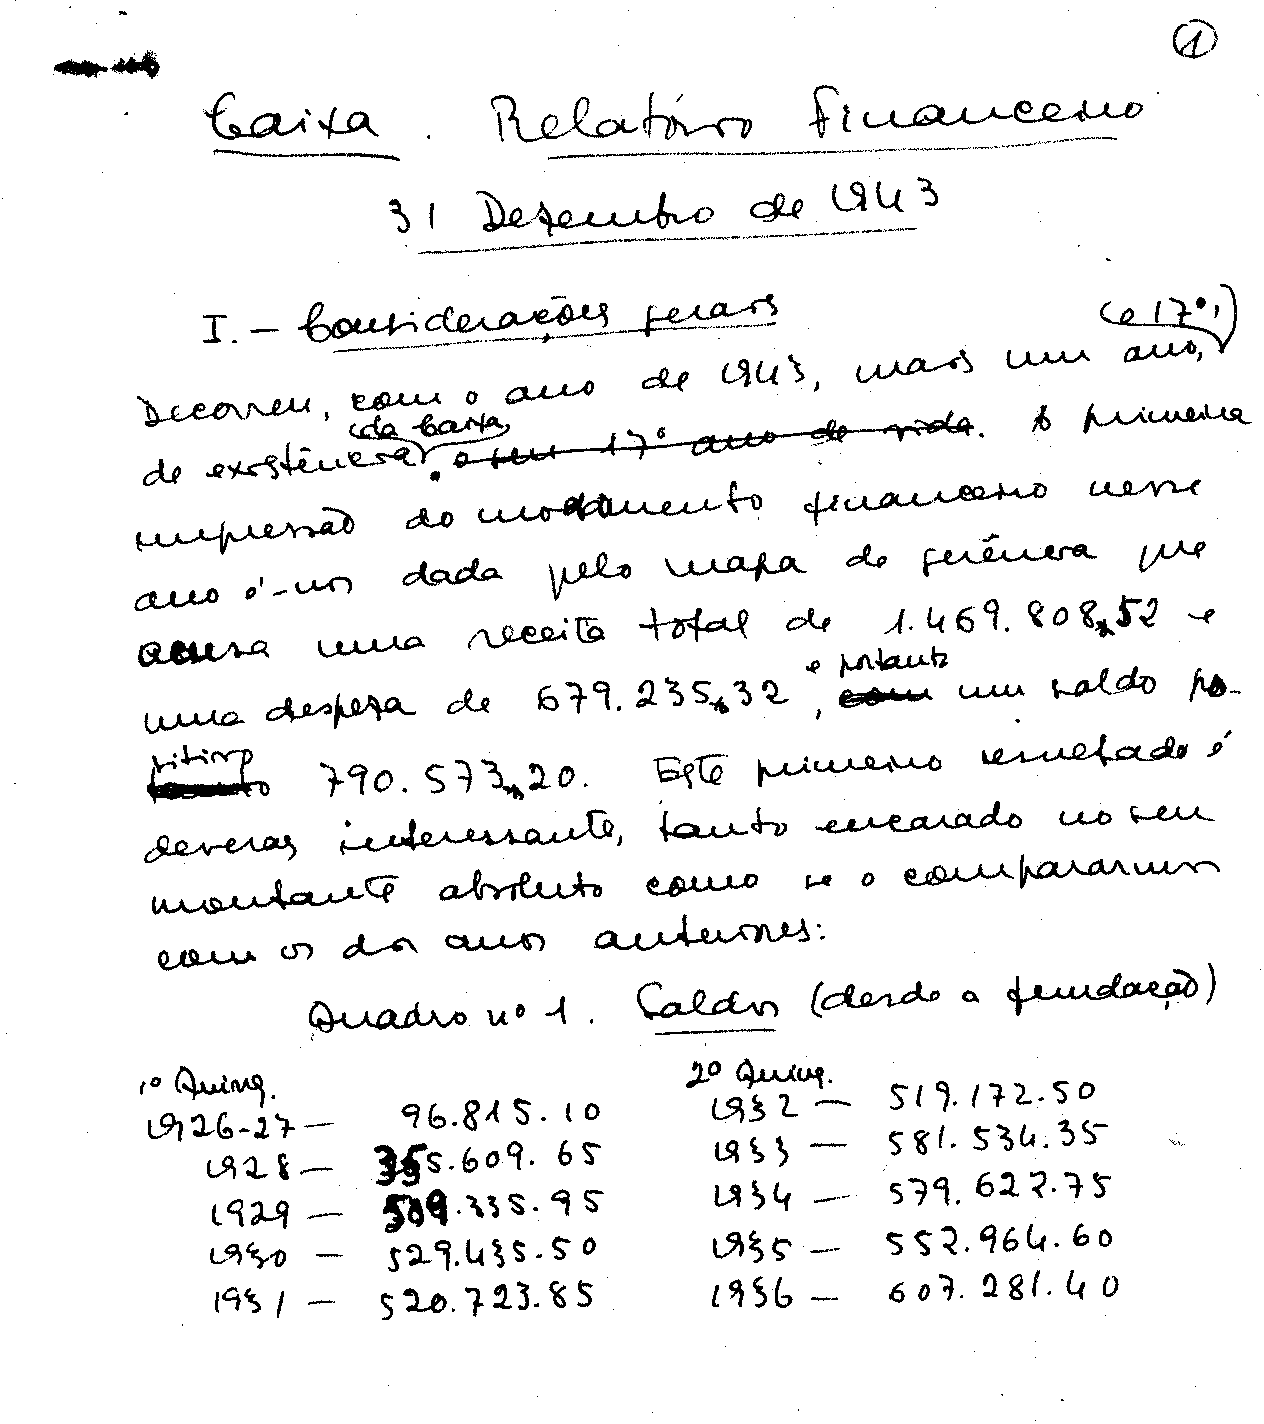 1
Caixa. Relatório Financeiro
31 Dezembro de 1943
I. - Considerações gerais
(o 17º,)
Decorreu, com o ano de 1943, mais um ano,
da Caixa
de existência. o seu 17º ano de vida. A primeira
impressão do movimento financeiro nesse
ano é-nos dada pelo mapa de gerência que
acusa uma receita total de 1.469.808$52 e
e portanto
uma despeza de 679.235$32, com um saldo po-
sitivo
790.573$20. Este primeiro resultado é
deveras interessante, tanto encarado no seu
montante absoluto como se o compararmos
com os dos anos anteriores:
Quadro nº 1. Saldos (desde a fundação)
1º Quinq. 2º Quinq.
1926-27 - 96.815.10 1932 - 519.172.50
1928 - 355.609.65 1933 - 581.534.35
1929 - 509.335.95 1934 - 579.622.75
1930 - 529.435.50 1935 - 552.964.60
1931 - 520.723.85 1936 - 607.281.40